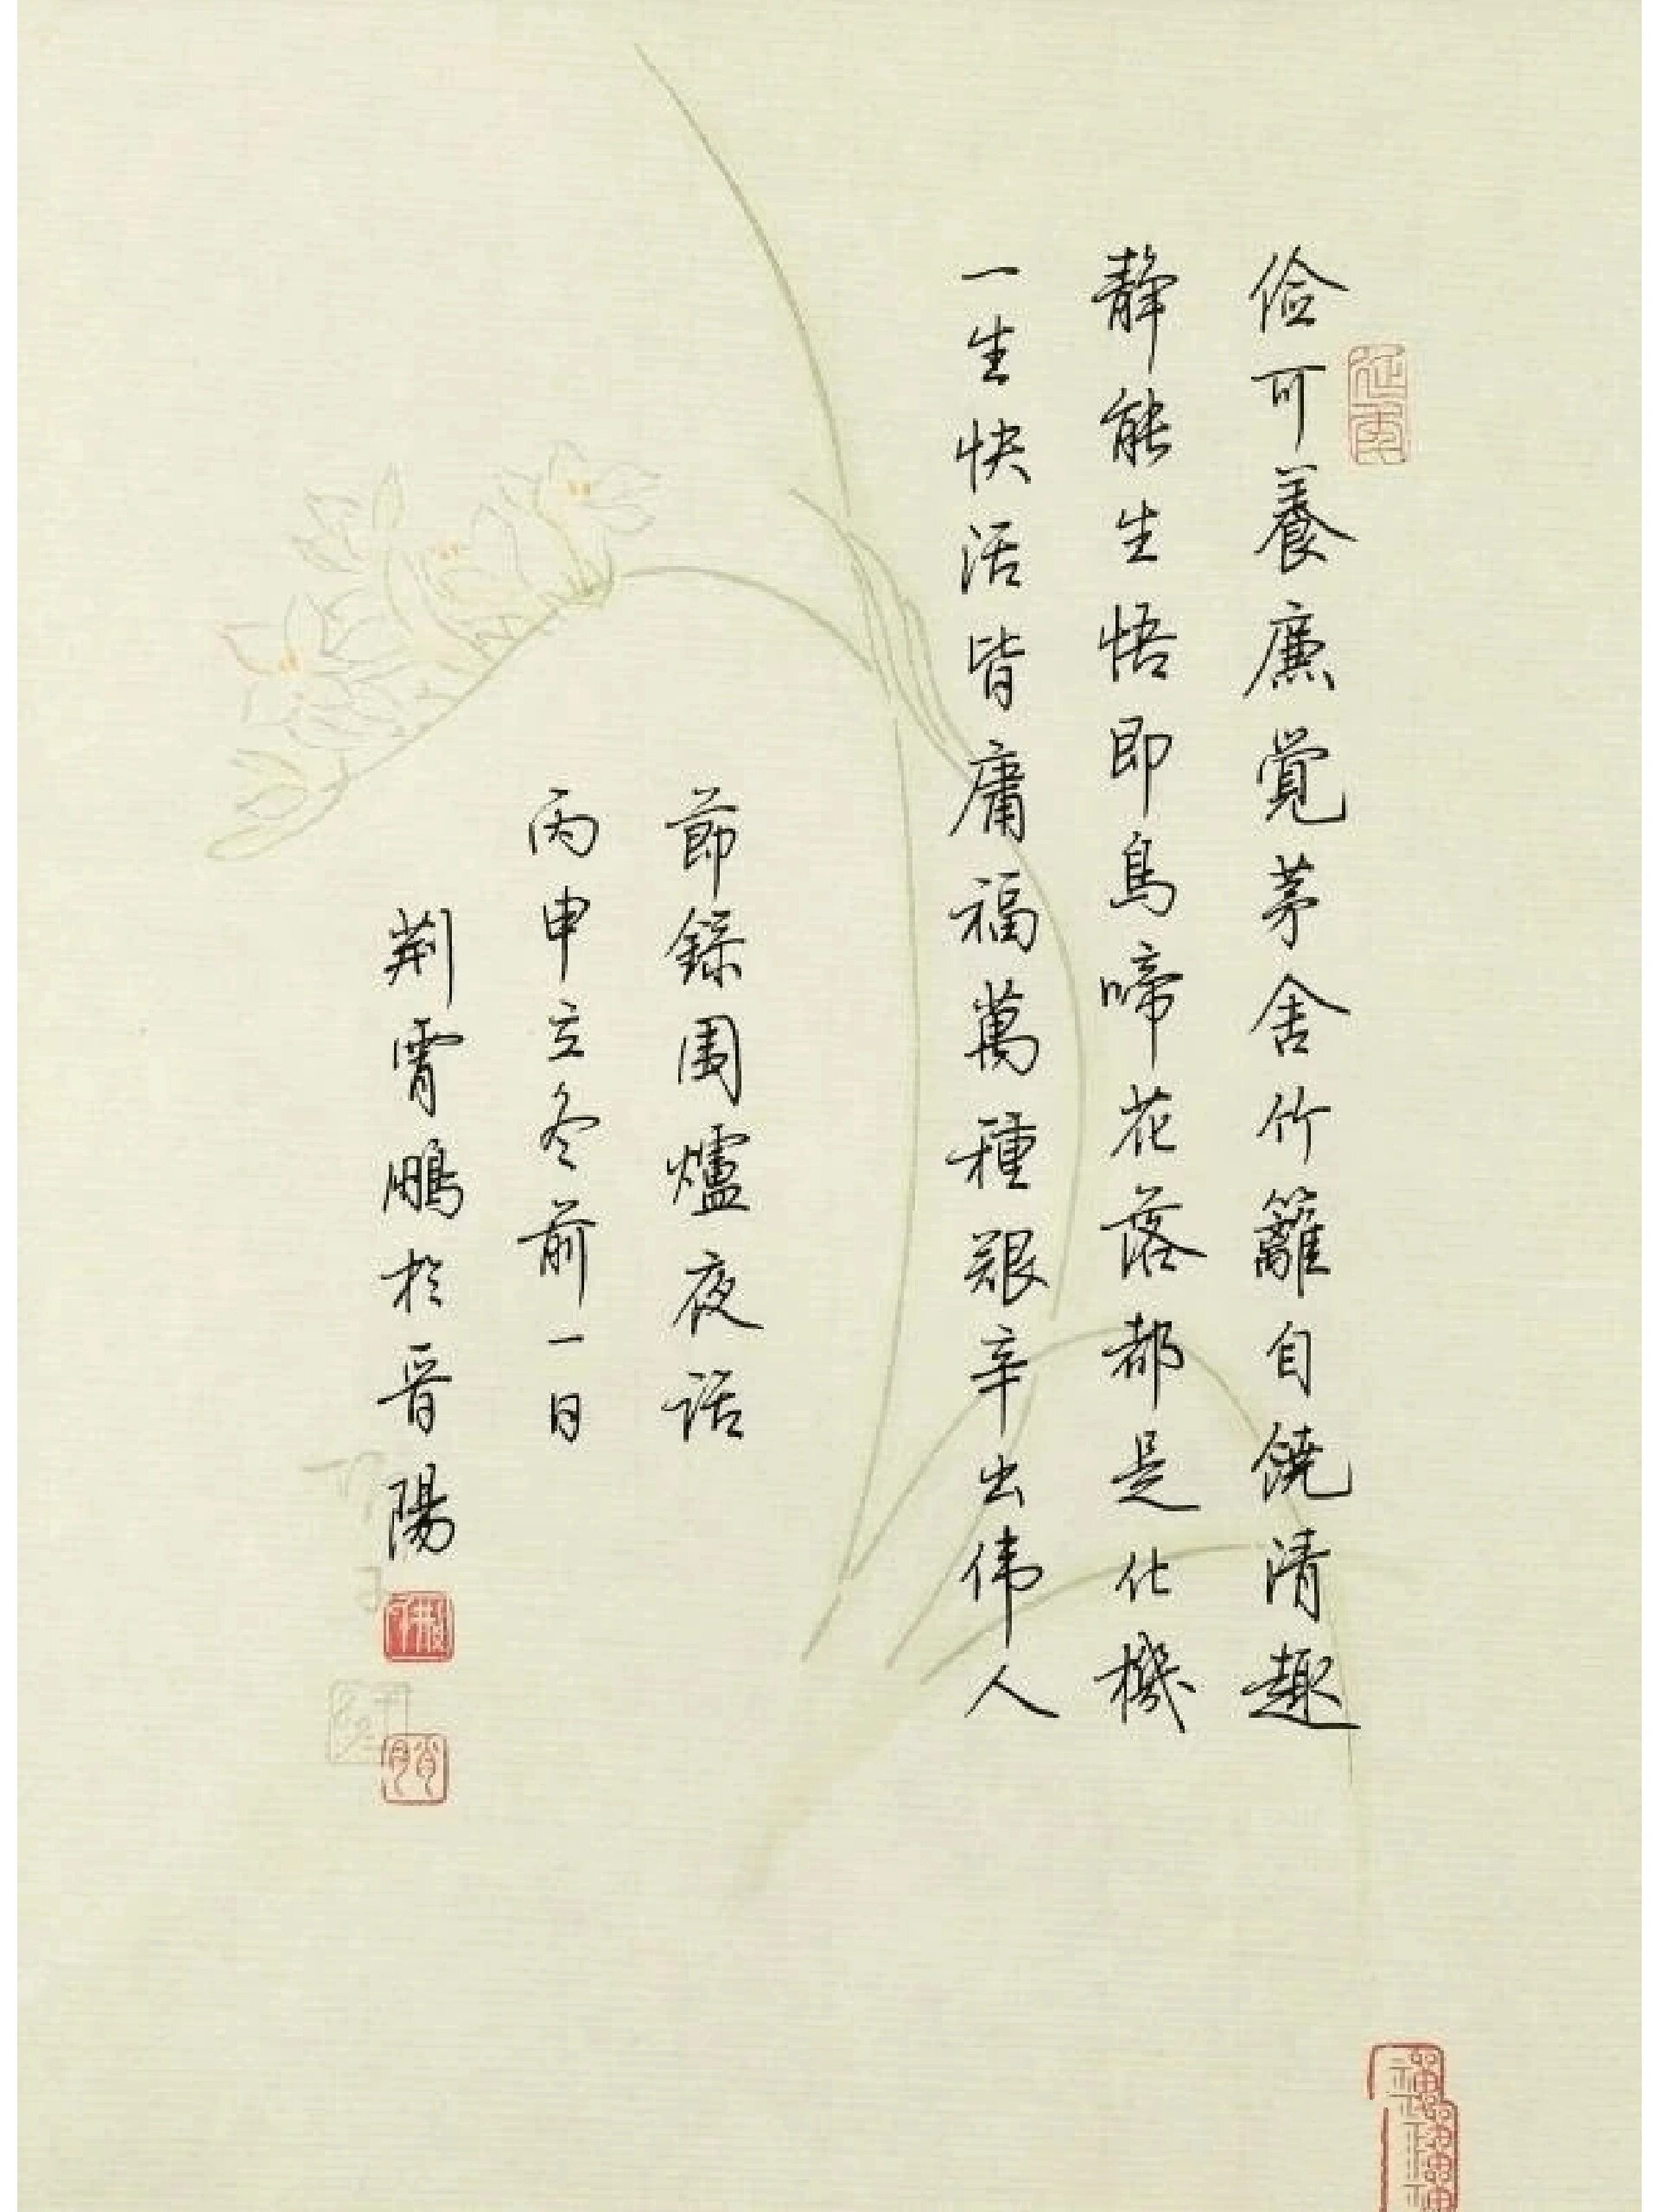 俭可養廉覺茅舍竹籬自饒清趣
静能生悟即鳥啼花落都是化機
一生快活皆庸福萬種艱辛出伟人
節錄围爐夜话
丙申立冬前一日
荆霄鵬於晋陽